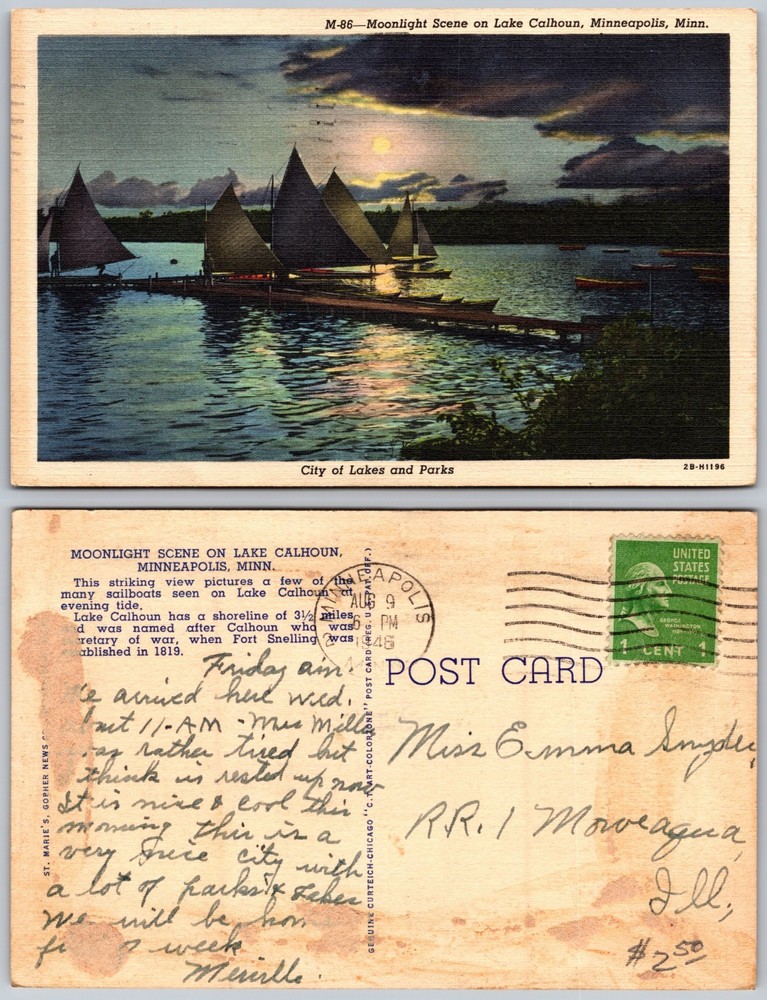 M-86—Moonlight Scene on Lake Calhoun, Minneapolis, Minn.
City of Lakes and Parks
2B-H1196
MOONLIGHT SCENE ON LAKE CALHOUN,
MINNEAPOLIS, MINN.
This striking view pictures a few of the
many sailboats seen on Lake Calhoun at
evening tide.
Lake Calhoun has a shoreline of 3½ miles
and was named after Calhoun who was
retary of war, when Fort Snelling was
tablished in 1819.
Friday am.
We arrived here Wed.
about 11-AM - Mrs Mills
was rather tired but
think is rested up now
It is nice & cool this
morning this is a
very nice city with
a lot of parks & Lakes
We will be home
week
ST. MARIE'S, GOPHER NEWS
GENUINE CURTEICH-CHICAGO "C.T. ART-COLORTONE" POST CARD (REG. U.S. PAT. OFF.)
MINNEAPOLIS
AUG 9
6 PM
1946
POST CARD
UNITED
STATES
POSTAGE
GEORGE
WASHINGTON
1 CENT 1
Miss Emma Snyder
RR. 1 Moweaqua,
Ill.,
$2.50